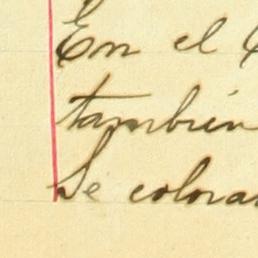 En el
también
Se colora